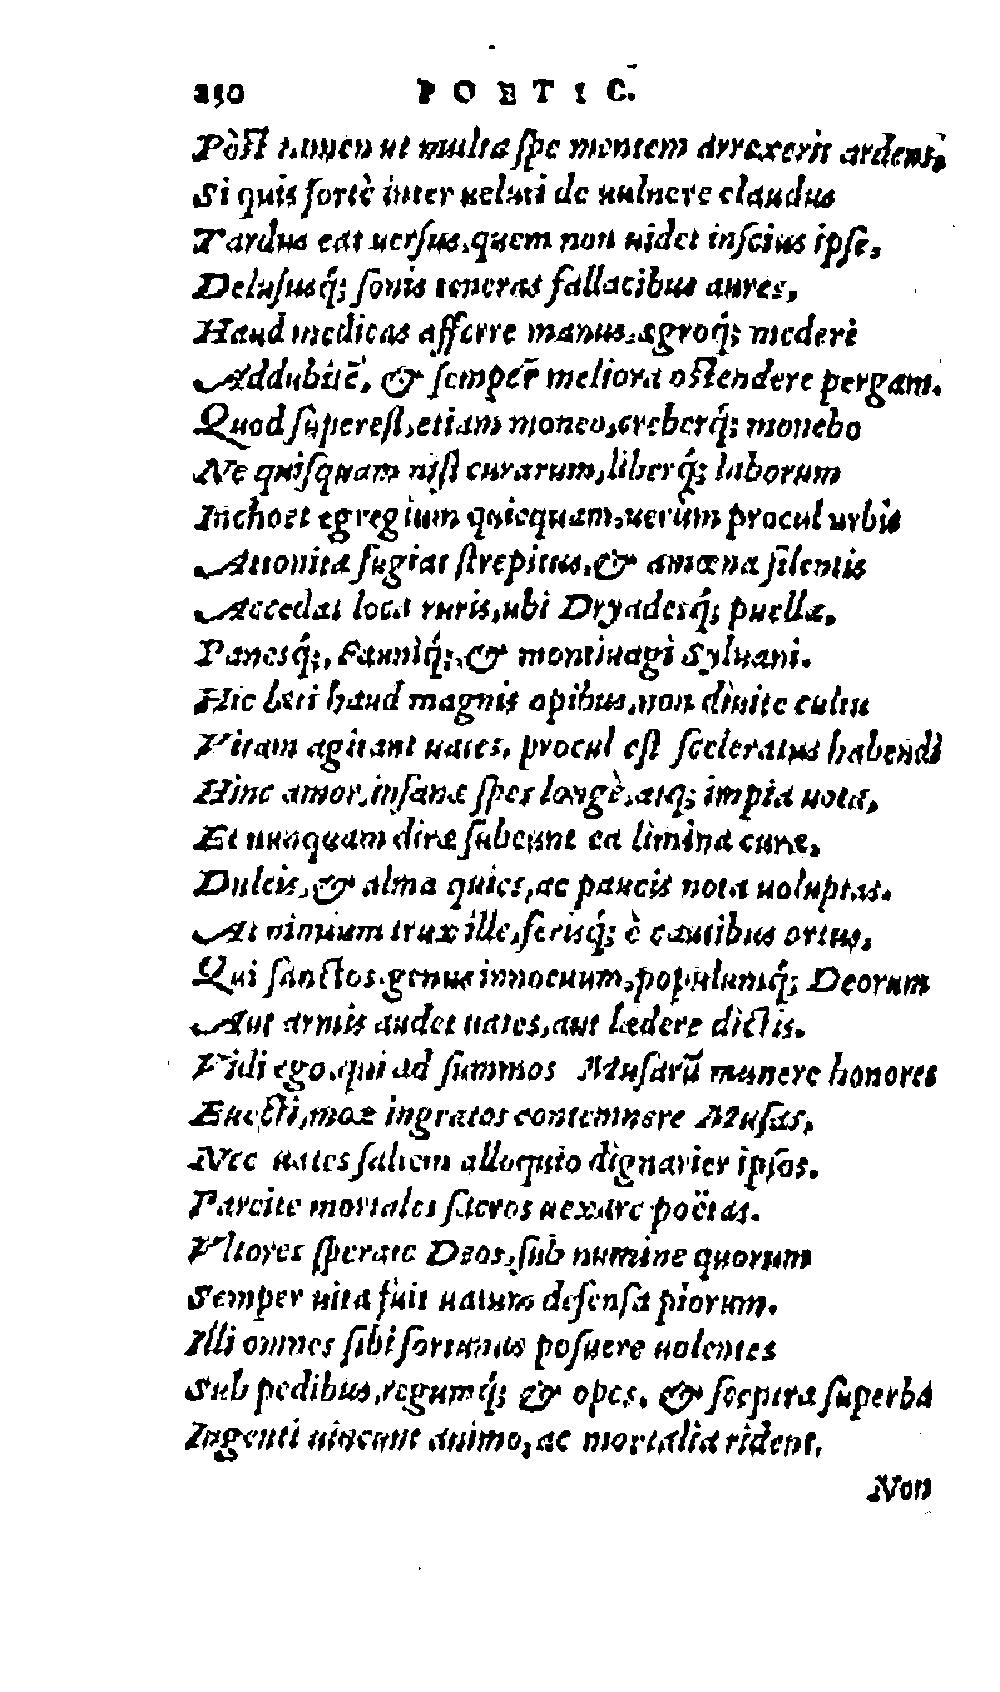 250 POETIC.
Pòst tamen ut multa spe mentem arrexerit ardenti,
Si quis fortè inter ueluti de uulnere claudus
Tardus eat uersus, quem non uidet inscius ipse,
Delususq́; sonis teneras fallacibus aures,
Haud medicas afferre manus, ægroq́; mederi
Addubitē, & semper meliora ostendere pergam.
Quod superest, etiam moneo, creberq́; monebo
Ne quisquam nisi curarum, liberq́; laborum
Inchoet egregium quicquam, uerùm procul urbis
Attonita fugiat strepitus, & amœna silentis
Accedat loca ruris, ubi Dryadesq́; puellæ,
Panesq́;, Fauniq́;, & montiuagi Syluani.
Hic læti haud magnis opibus, non diuite cultu
Vitam agitant uates, procul est sceleratus habendi
Hinc amor, insanæ spes longè, atq; impia uota,
Et nunquam diræ subeunt ea limina curæ,
Dulcis, & alma quies, ac paucis nota uoluptas.
At nimium trux ille, ferisq́; è cautibus ortus,
Qui sanctos. genus innocuum, populumq́; Deorum
Aut armis audet uates, aut lædere dictis.
Vidi ego, qui ad summos Musarū munere honores
Euecti, mox ingratos contemnere Musas,
Nec uates saltem alloquio dignarier ipsos.
Parcite mortales sacros uexare poëtas.
Vltores sperate Deos, sub numine quorum
Semper uita fuit uatum defensa piorum.
Illi omnes sibi fortunas posuere uolentes
Sub pedibus, regumq́; & opes, & sceptra superba
Ingenti uincunt animo, ac mortalia rident,
Non